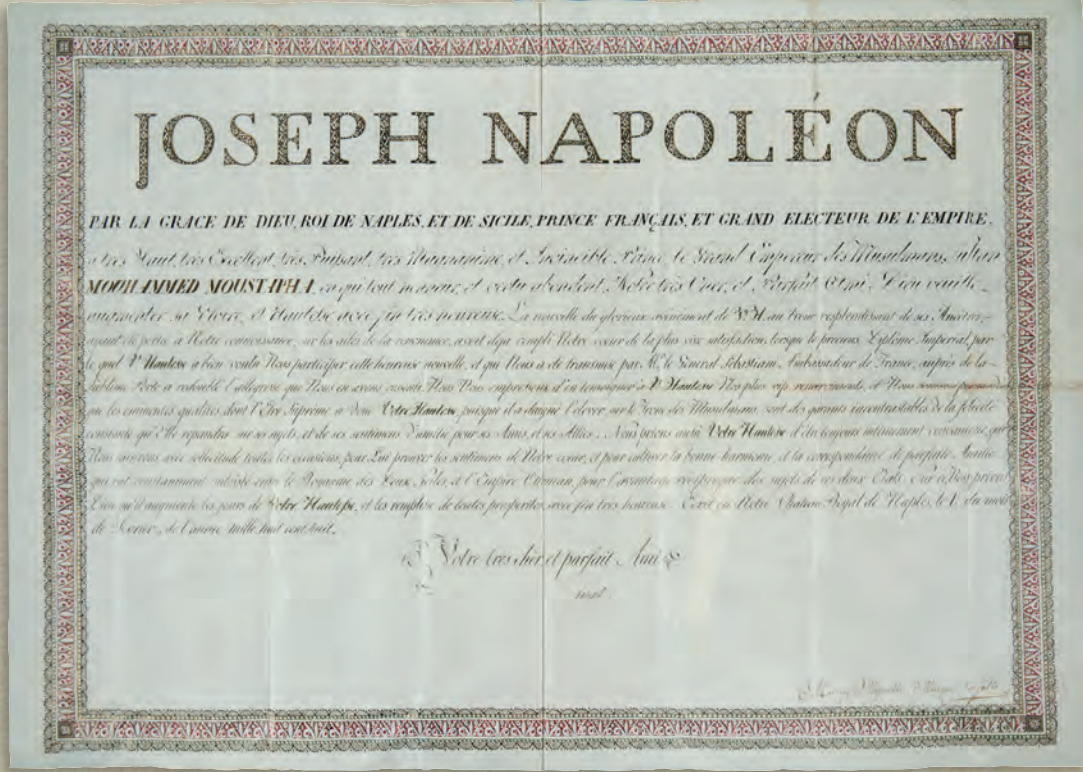 JOSEPH NAPOLÉON
PAR LA GRACE DE DIEU, ROI DE NAPLES, ET DE SICILE, PRINCE FRANÇAIS, ET GRAND ELECTEUR DE L'EMPIRE.
a très Haut, très Excellent, très Puissant, très Magnanime, et Invincible Prince, le Grand Empereur des Musulmans, Sultan
MOOHAMMED MOUSTAPHA, en qui tout honneur, et vertu abondent, Notre très Cher, et Parfait Ami. Dieu veuille
augmenter sa Gloire, et Hautesse avec fin très heureuse. La nouvelle du glorieux avènement de V. H. au trone resplendissant de ses Ancêtres,
ayant été portée à Notre connoissance, sur les ailes de la renommée, avoit déja comblé Notre coeur de la plus vive satisfaction, lorsque le précieux Diplôme Impérial, par
le quel V. Hautesse a bien voulu Nous participer cette heureuse nouvelle, et qui Nous a été transmise par M. le Général Sébastiani, Ambassadeur de France, auprès de la
Sublime Porte a redoublé l'allegresse que Nous en avons ressenti. Nous Nous empressons d'en temoigner à V. Hautesse Nos plus vifs remerciments, et Nous sommes
que les eminentes qualités dont l'Etre Suprême a doué Votre Hautesse, puisque il a daigné l'élever sur le Trone des Musulmans, sont des garants incontrastables de la félicité
constante qu'Elle repandra sur ses sujets, et de ses sentimens d'amitié pour ses Amis, et ses Alliés. Nous prions aussi Votre Hautesse d'être toujours intimement convaincue, que
Nous saisirons avec sollicitude toutes les occasions, pour Lui prouver les sentimens de Notre coeur, et pour cultiver la bonne harmonie, et la correspondance de parfaite Amitié
qui ont constamment subsisté entre le Royaume des Deux Siciles, et l'Empire Ottoman, pour l'avantage réciproque des sujets de ces deux Etats. Sur ce, Nous prions
Dieu qu'il augmente les jours de Votre Hautesse, et les remplisse de toutes prosperités avec fin très heureuse. Ecrit en Notre Chateau Royal de Naples, le 1. du mois
de Fevrier, de l'année mille huit cent huit.
Votre très cher, et parfait Ami